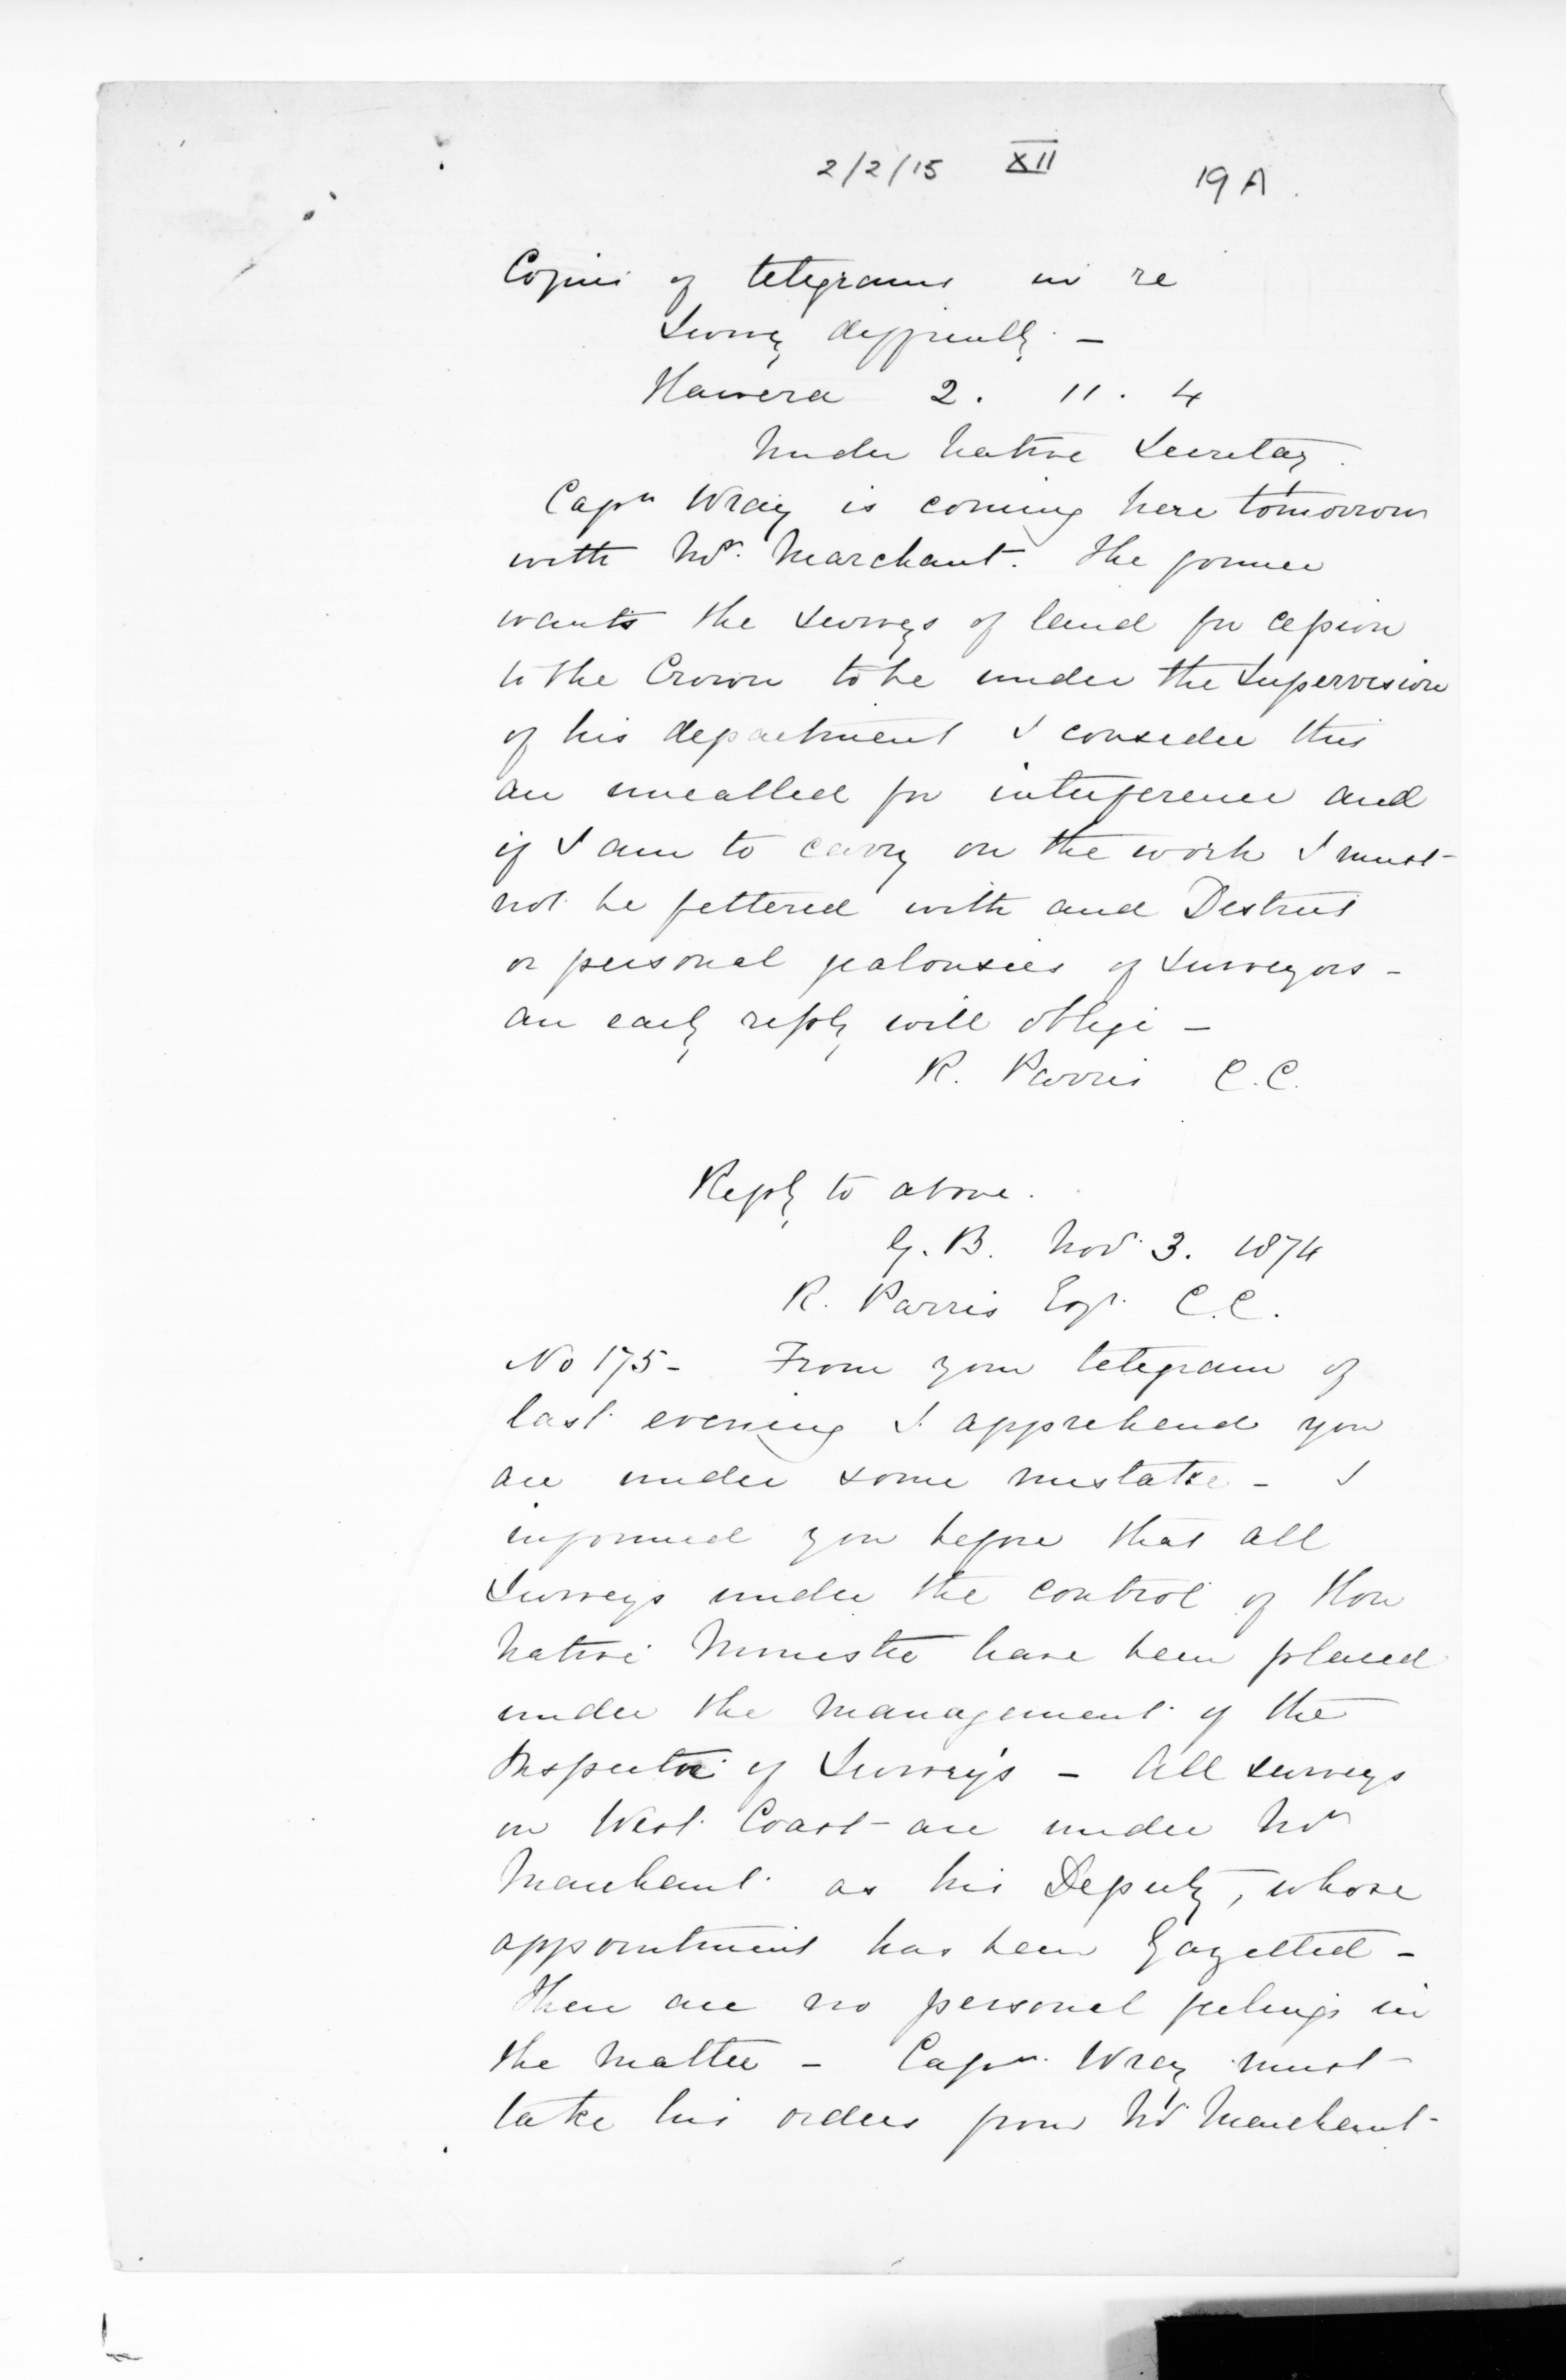 2/2/15 XII 19A.
Copies of telegrams in re
Survey difficulty. —
Hawera 2. 11. 4
Under Native Secretary.
Captn Wray is coming here tomorrow
with Mr. Marchant. The former
wants the surveys of land for cession
to the Crown to be under the supervision
of his department I consider this
an uncalled for interference and
if I am to carry on the work I must
not be fettered with and District
or personal jealousies of surveyors -
an early reply will oblige —
R. Parris C.C.
Reply to above.
G.B. Nov. 3. 1874
R. Parris Esqr. C.C.
No 175 - From your telegram of
last evening I apprehend you
are under some mistake - I
informed you before that all
Surveys under the control of Hon
Native Minister have been placed
under the management of the
Inspector of Surveys - All surveys
on West Coast are under Mr
Marchant as his Deputy, whose
appointment has been Gazetted -
There are no personal feelings in
the matter - Captn. Wray must
take his orders from Mr Marchant -